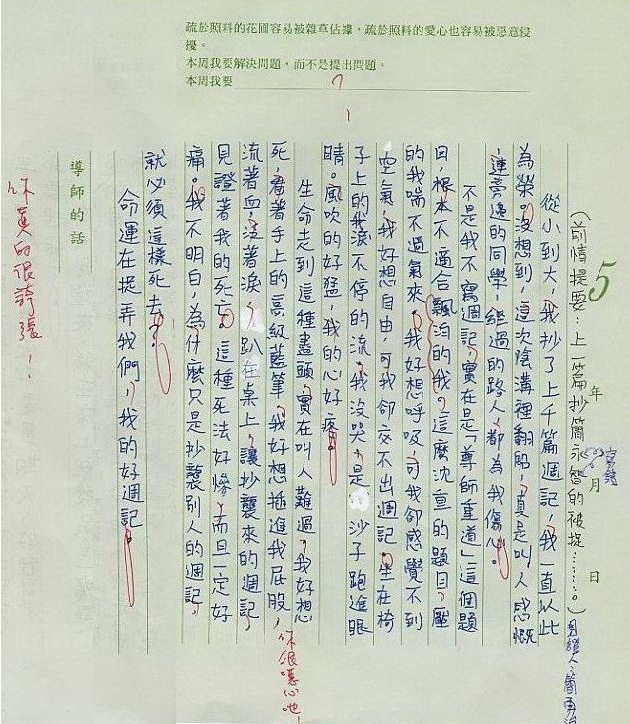 疏於照料的花圃容易被雜草佔據，疏於照料的愛心也容易被惡意侵
擾。
本周我要解決問題，而不是提出問題。
本周我要
5
年 月 日
(前情提要：上一篇抄簡永智的被捉……。)
從小到大，我抄了上千篇週記，我一直以此
為榮。沒想到，這次陰溝裡翻船，真是叫人感慨
，連旁邊的同學，經過的路人，都為我傷心。
不是我不寫週記，實在是「尊師重道」這個題
目，根本不適合飄泊的我，這麼沈重的題目，壓
的我喘不過氣來，我好想呼吸，可我卻感覺不到
空氣，我好想自由，可我卻交不出週記，坐在椅
子上的我淚不停的流，我沒哭，是沙子跑進眼
睛。風吹的好猛，我的心好疼。
生命走到這種盡頭，實在叫人難過，我好想
死，看著手上的高級藍筆，我好想插進我屁股，
流著血，泣著淚，趴在桌上，讓抄襲來的週記，
見證著我的死亡。這種死法好慘，而且一定好
痛。我不明白，為什麼只是抄襲別人的週記，
就必須這樣死去？
命運在捉弄我們，我的好週記。
你很噁心吧！
導師的話
你真的很誇張！